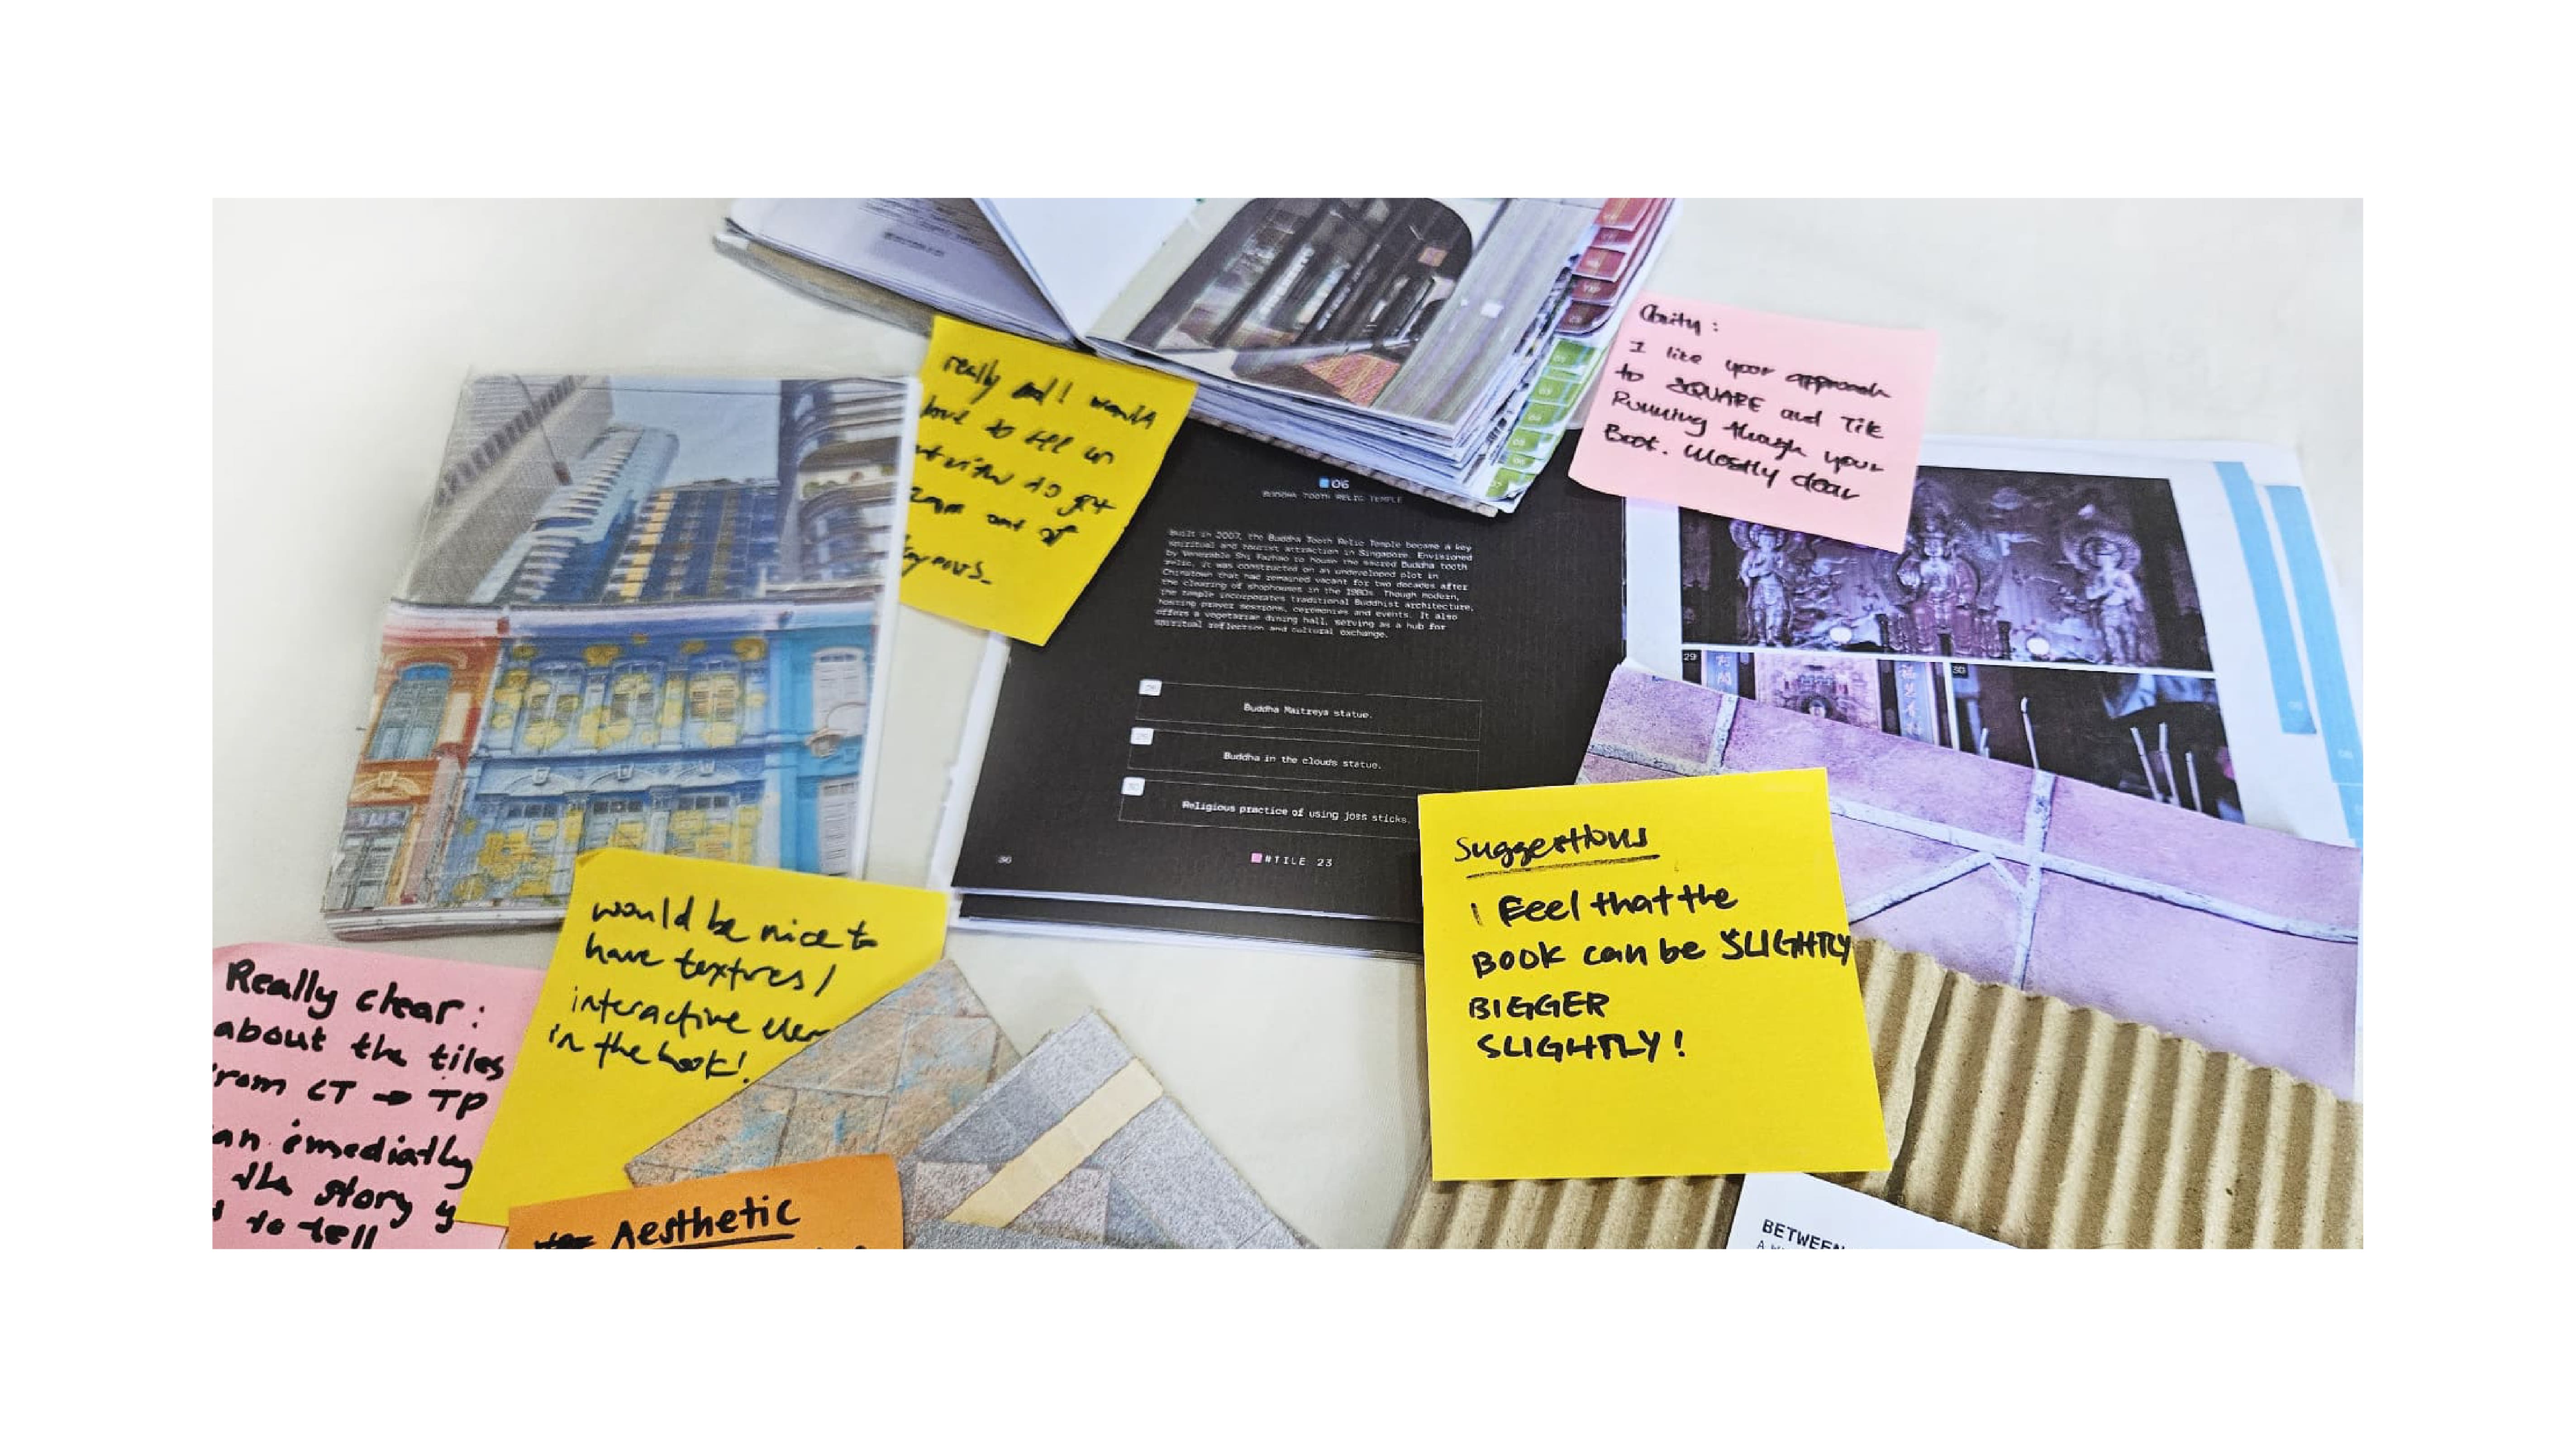 Clarity:
I like your approach
to SQUARE and Tile
Running though your
Book. Mostly clear
really
love to
06
BUDDHA TOOTH RELIC TEMPLE
Built in 2007, the Buddha Tooth Relic Temple became a key
spiritual and tourist attraction in Singapore. Envisioned
by Venerable Shi Fazhao to house the sacred Buddha tooth
relic, it was constructed on an undeveloped plot in
Chinatown that had remained vacant for two decades after
the clearing of shophouses in the 1980s. Though modern,
the temple incorporates traditional Buddhist architecture,
hosting prayer sessions, ceremonies and events. It also
offers a vegetarian dining hall, serving as a hub for
spiritual reflection and cultural exchange.
Buddha Maitreya statue.
Buddha in the clouds statue.
30
Religious practice of using joss sticks.
#TILE 23
29
30
Suggestions
I Feel that the
BOOK can be SLIGHTLY
BIGGER
SLIGHTLY!
would be nice to
have textures /
interactive elem
in the book!
Really clear:
about the tiles
rom CT → TP
an emediatly
the story y
to tell
Aesthetic
BETWEEN